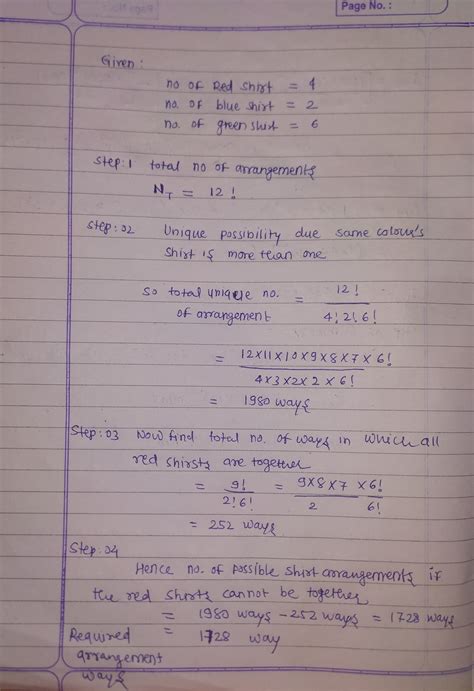 Page No. :
Given :
no of Red shirt = 4
no. of blue shirt = 2
no. of green shirt = 6
Step:1 total no of arrangements
N_T = 12!
Step:02 Unique possibility due same colour's
shirt is more than one
So total unique no. of arrangement = 12! / 4! 2! 6!
= 12x11x10x9x8x7x6! / 4x3x2x2x6!
= 1980 ways
Step:03 Now find total no. of ways in which all
red shirsts are together
= 9! / 2! 6! = 9x8x7x6! / 2 6!
= 252 ways
Step:04
Hence no. of possible shirt arrangements if
the red shirts cannot be together
= 1980 ways - 252 ways = 1728 ways
Required arrangement ways = 1728 way